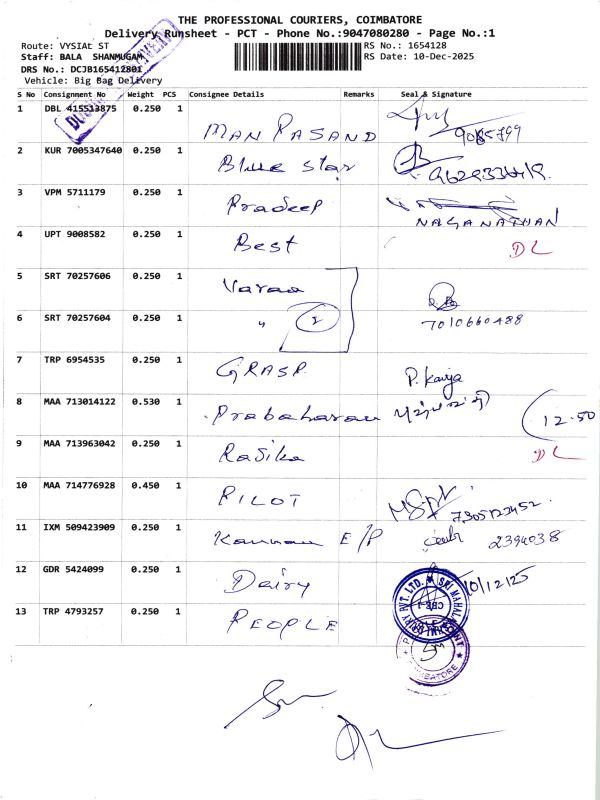 THE PROFESSIONAL COURIERS, COIMBATORE
Delivery Runsheet - PCT - Phone No.:9047080280 - Page No.:1
Route: VYSIAL ST
RS No.: 1654128
Staff: BALA SHANMUGAM
RS Date: 10-Dec-2025
DRS No.: DCJB165412801
Vehicle: Big Bag Delivery
S No Consignment No Weight PCS Consignee Details Remarks Seal & Signature
1 DBL 415513875 0.250 1 MAN PASAND
2 KUR 7005347640 0.250 1 Blue star
3 VPM 5711179 0.250 1 Pradeep NAGANATHAN
4 UPT 9008582 0.250 1 Best DL
5 SRT 70257606 0.250 1
6 SRT 70257604 0.250 1 " 2 7010660488
7 TRP 6954535 0.250 1 GRASP P. Kavya
8 MAA 713014122 0.530 1 Prabaharan 12.50
9 MAA 713963042 0.250 1 Rasika DL
10 MAA 714776928 0.450 1 PILOT
11 IXM 509423909 0.250 1 Kannan E/P 2394038
12 GDR 5424099 0.250 1 Dairy 10/12/25
13 TRP 4793257 0.250 1 PEOPLE